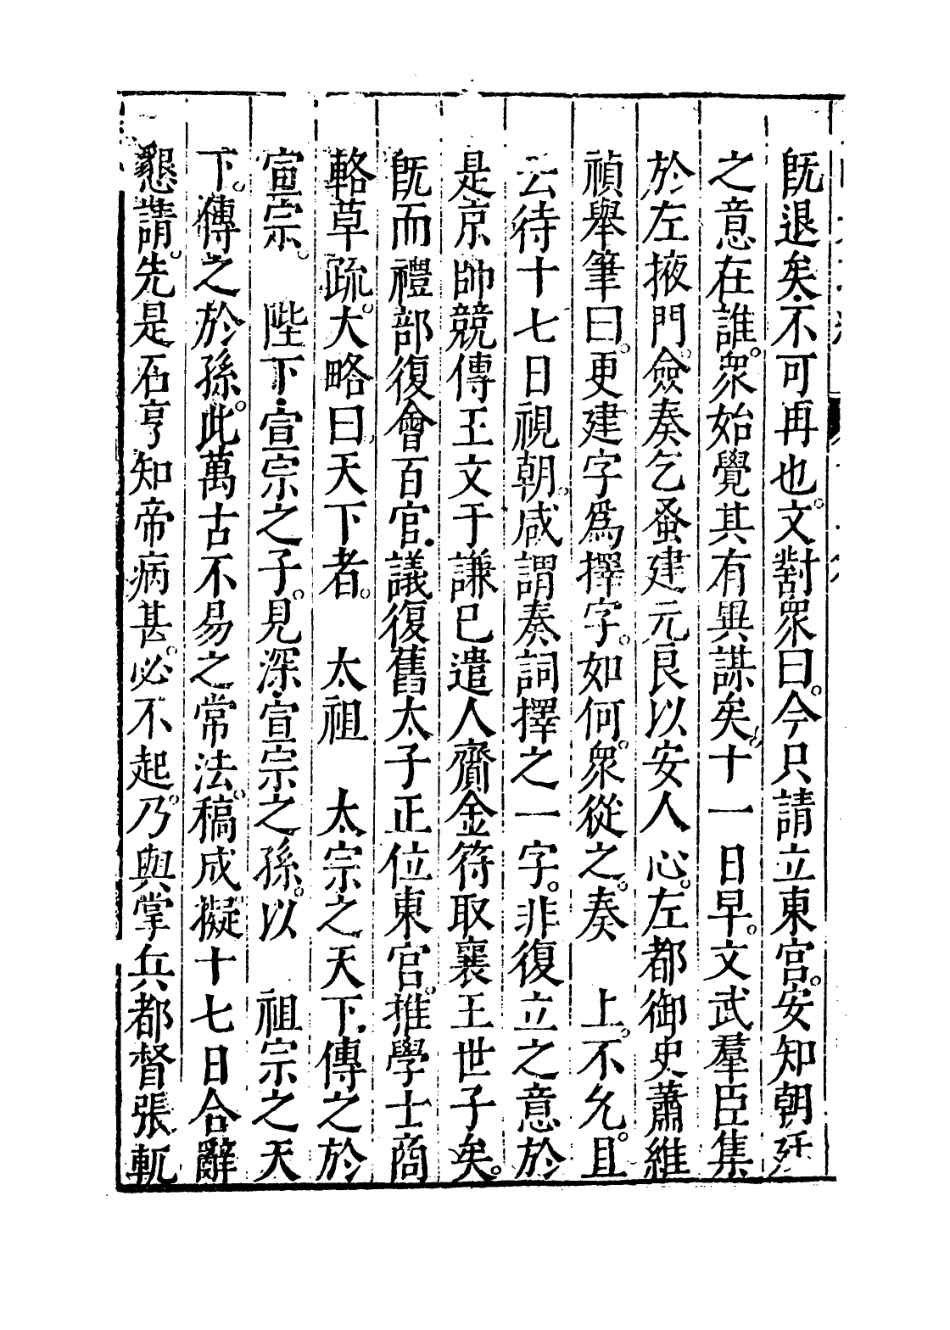 旣退矣不可再也。文對眾曰。今只請立東宮。安知朝廷
之意在誰。眾始覺其有異謀矣。十一日早。文武羣臣集
於左掖門僉奏乞蚤建元良以安人心。左都御史蕭維
禎舉筆曰。更建字爲擇字。如何。眾從之。奏　上。不允。且
云待十七日視朝。咸謂奏詞擇之一字。非復立之意於
是京師競傳王文于謙已遣人齎金符取襄王世子矣。
旣而禮部復會百官。議復舊太子正位東宮。推學士商
輅草疏。大略曰。天下者。　太祖　太宗之天下。傳之於
宣宗。　陛下。宣宗之子。見深。宣宗之孫。以　祖宗之天
下。傳之於孫。此萬古不易之常法。稿成擬十七日合辭
懇請。先是石亨知帝病甚。必不起。乃與掌兵都督張軏